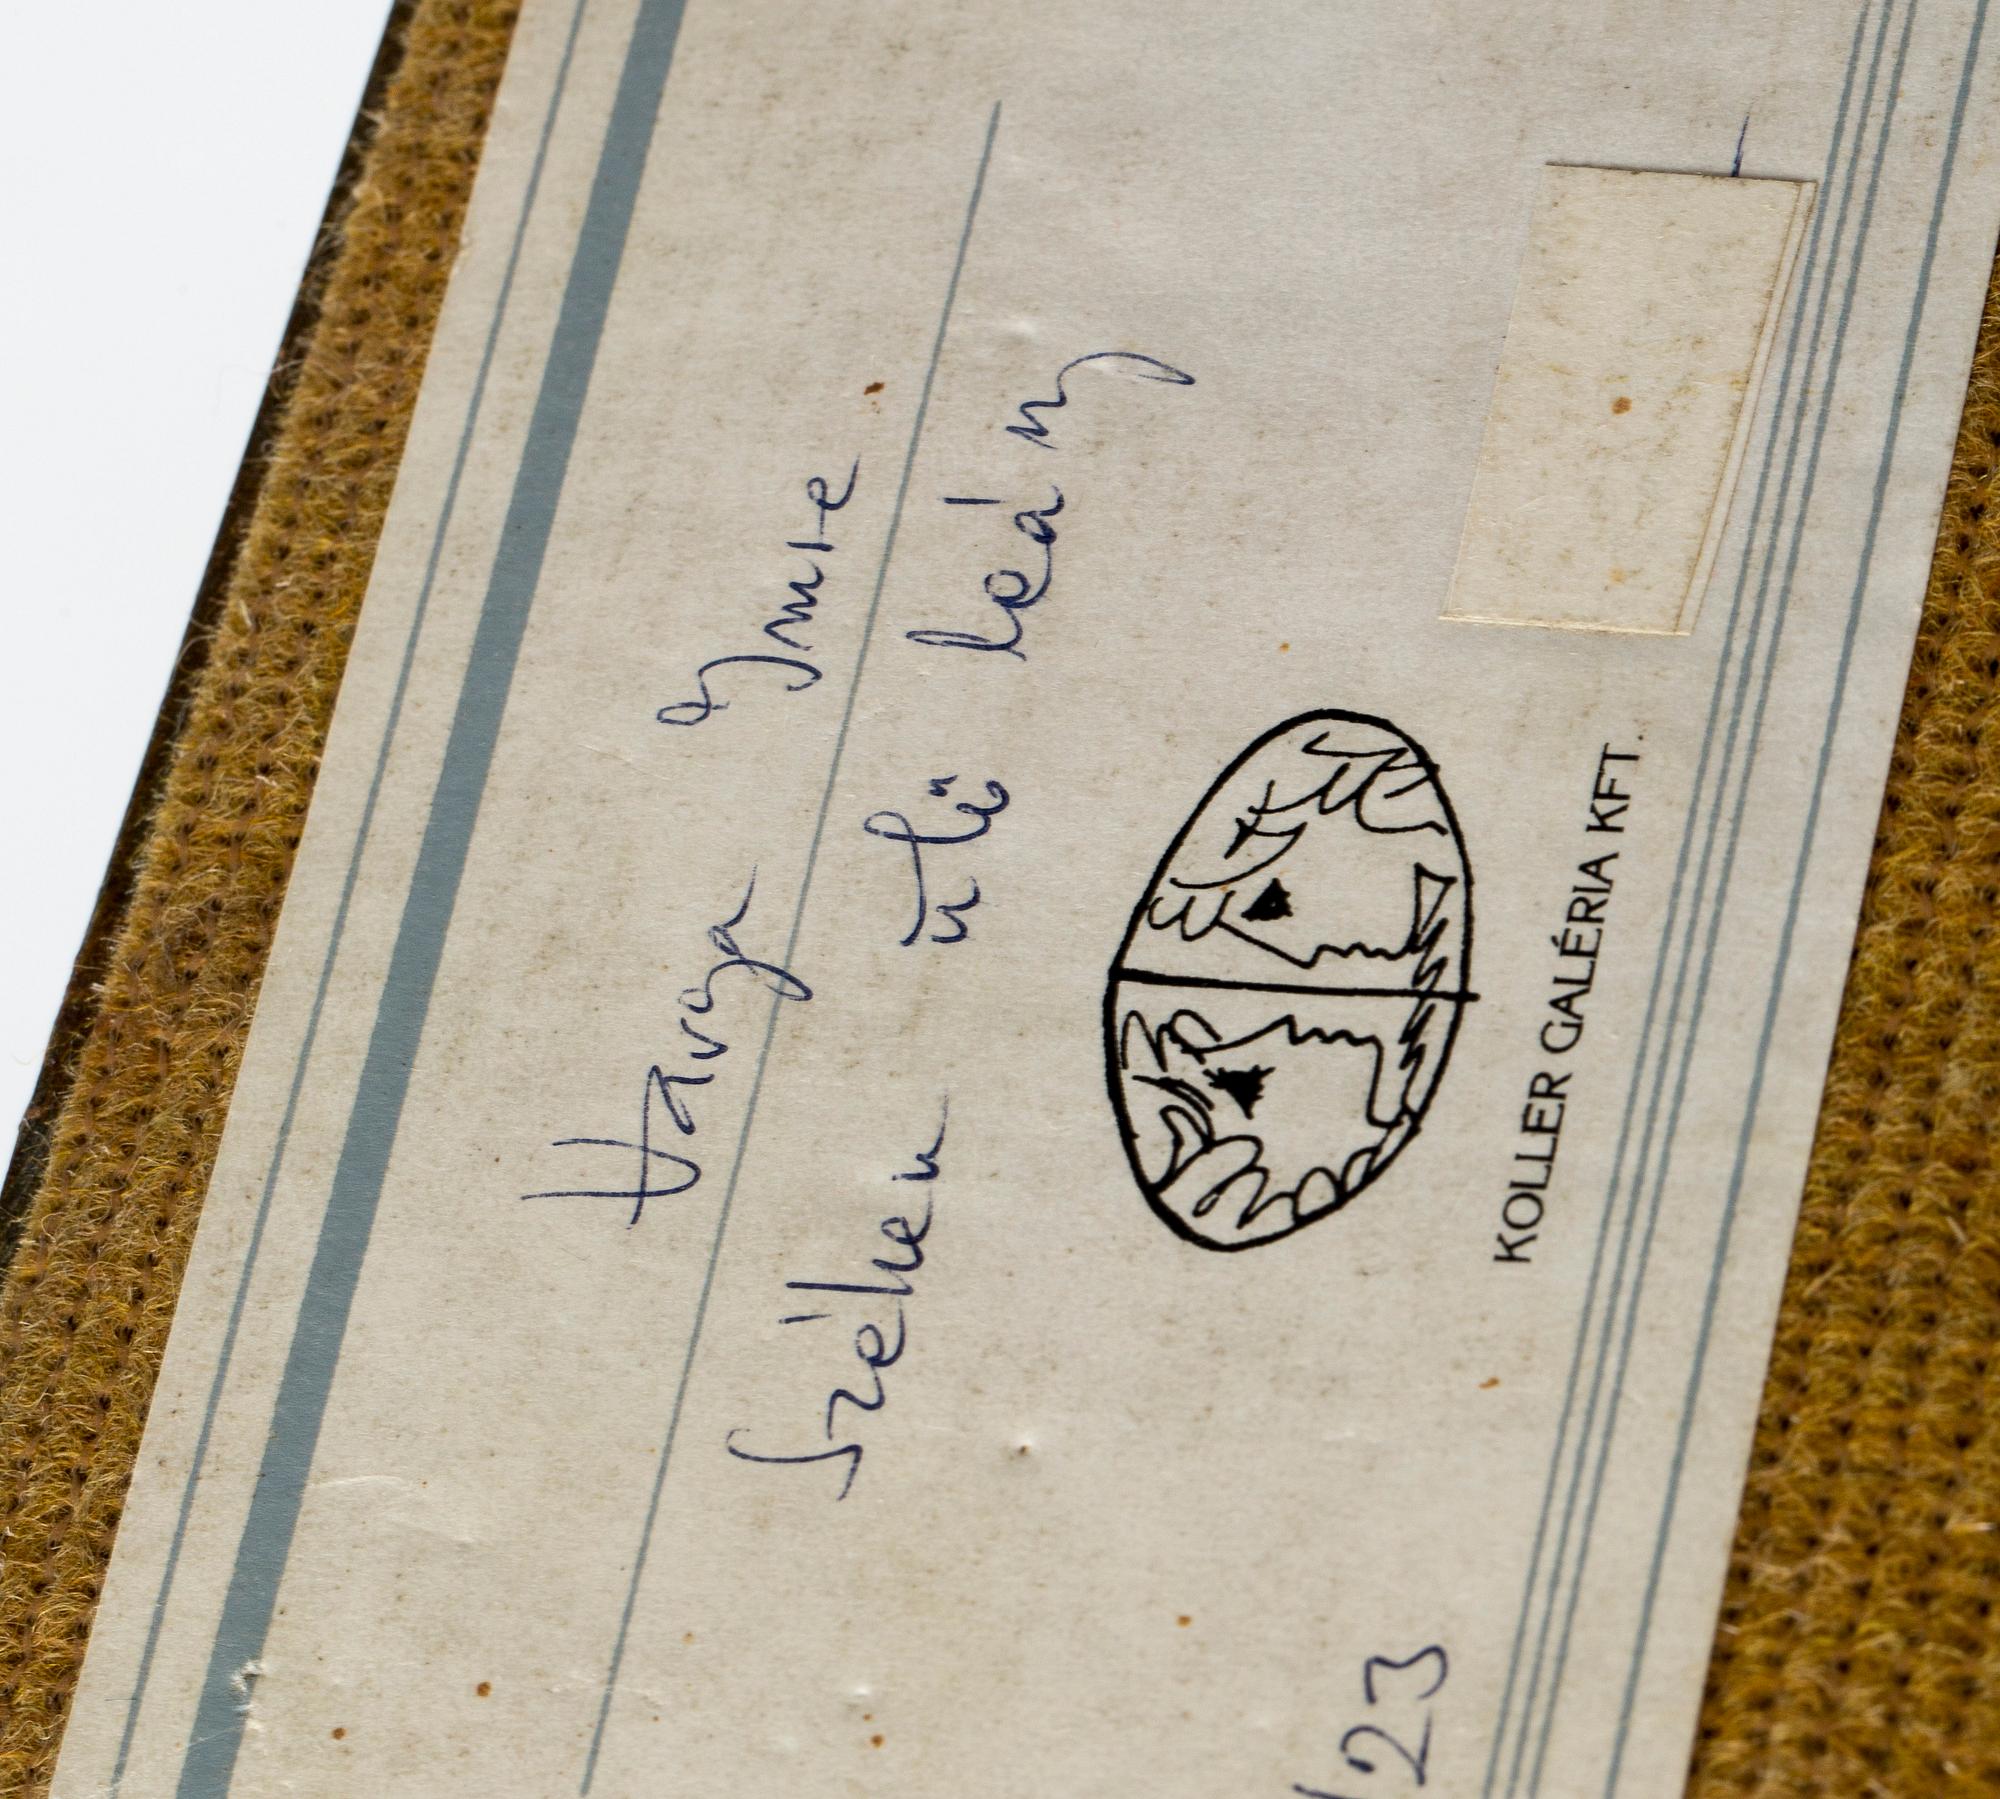 Varga Imre
Széken ülő leány
KOLLER GALÉRIA KFT.
/23